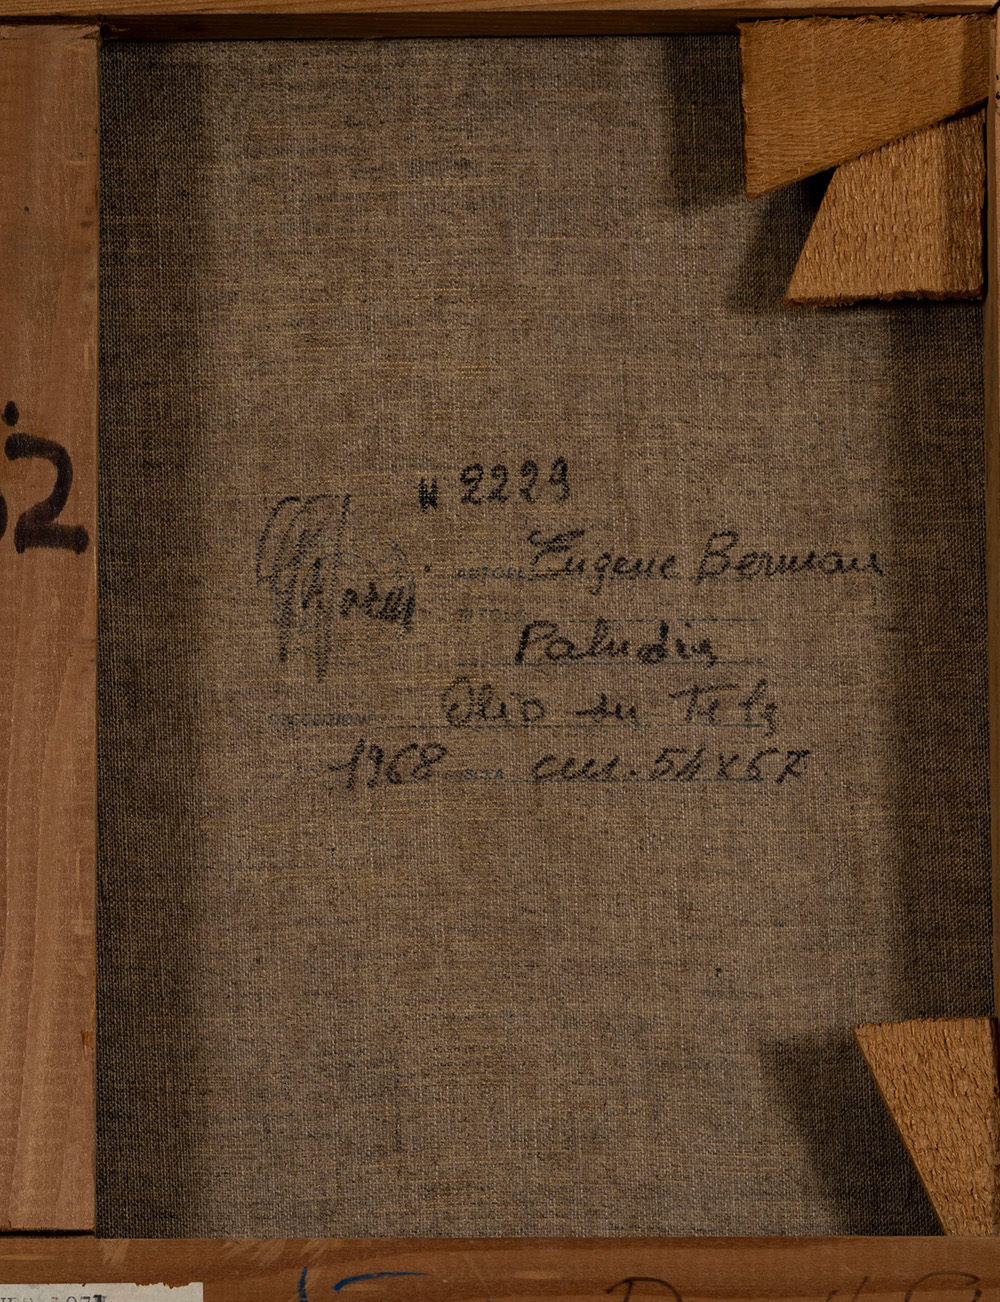 2
N 2229
AUTORE Eugene Berman
TITOLO
Paludia
Olio su Tela
1968 cm. 54x67